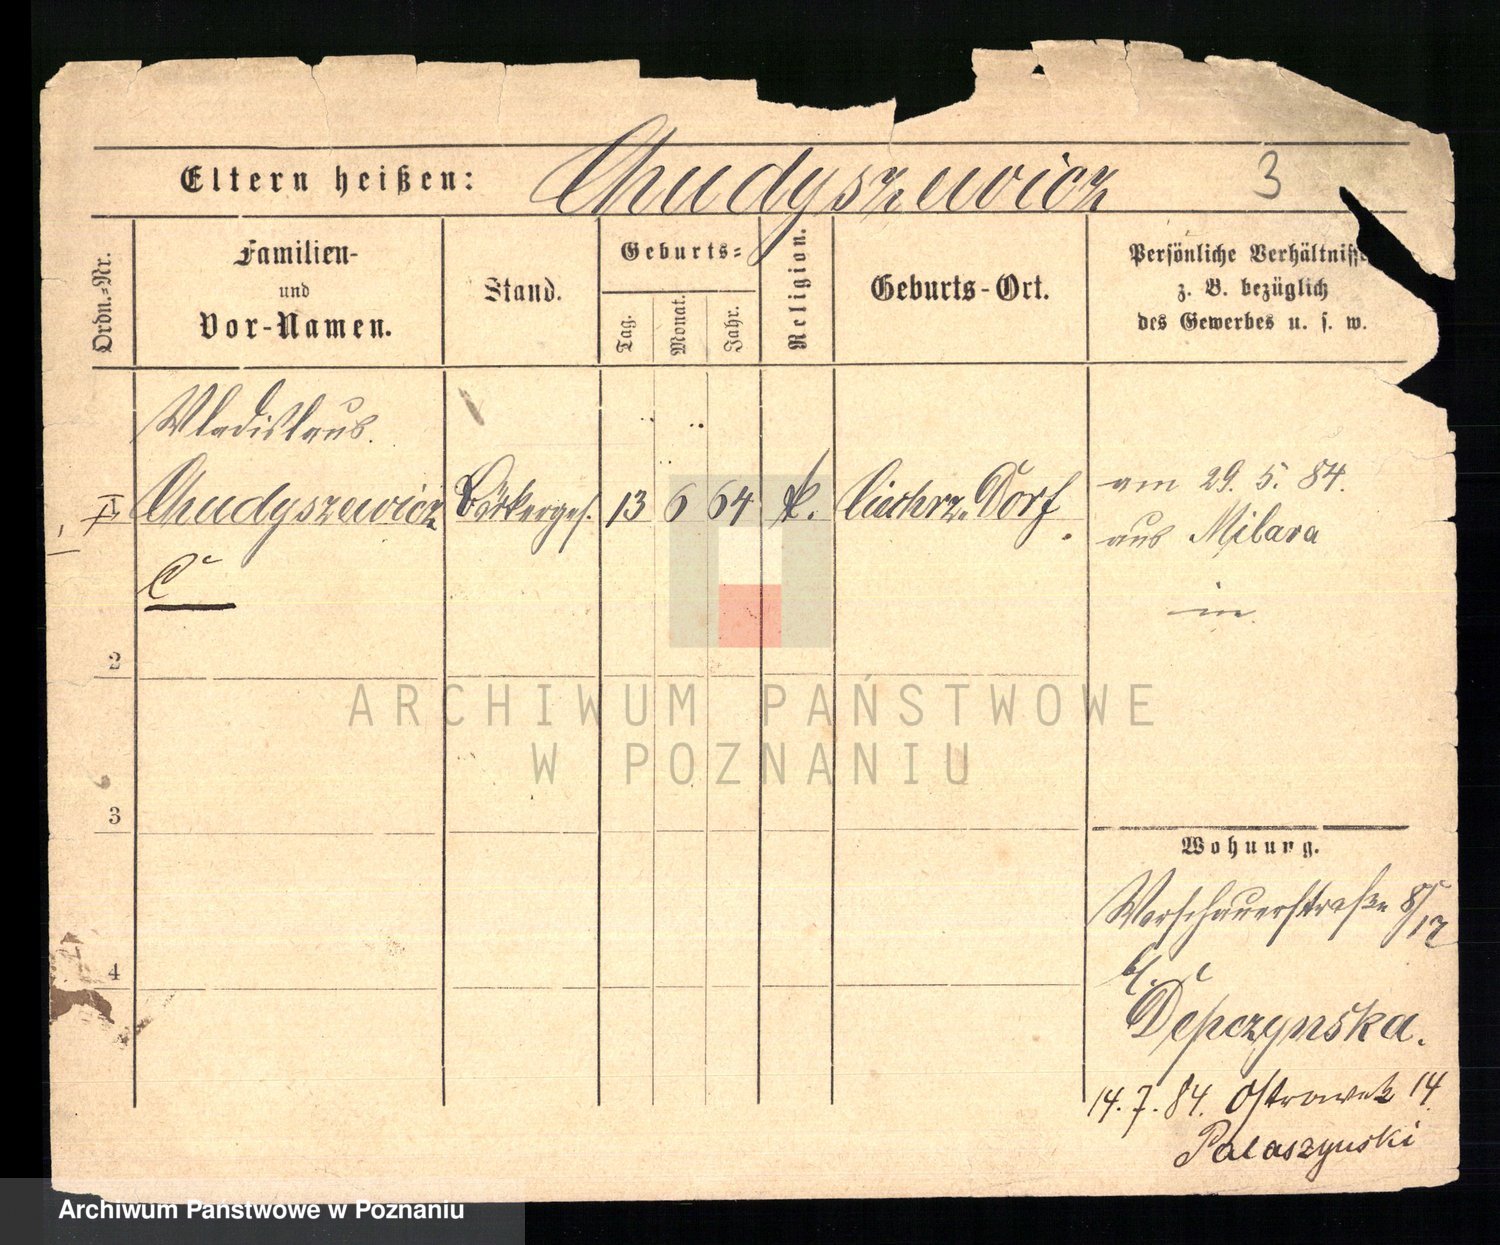 Eltern heißen: Chudyszewicz 3
Ordn.-Nr.
Familien-
und
Vor-Namen.
Stand.
Geburts-
Tag.
Monat.
Jahr.
Religion.
Geburts-Ort.
Persönliche Verhältnisse
z. B. bezüglich
des Gewerbes u. s. w.
Wladislaus.
I Chudyszewicz Bäckerges. 13 6 64 k. Dorf
am 29. 5. 84.
aus Milara
2
3
4
Wohnung.
Warschauerstraße 8/12
b/.
Depczynska.
14. 7. 84. Ostrowek 14
Palaszynski
ARCHIWUM PAŃSTWOWE
W POZNANIU
Archiwum Państwowe w Poznaniu